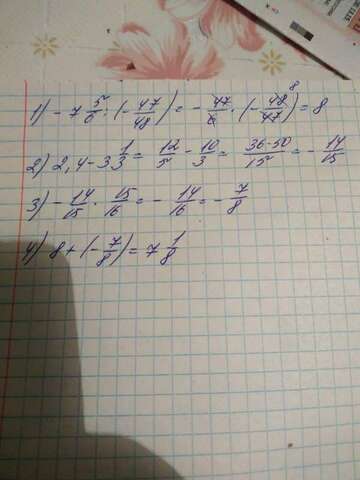 1) - 7 5/6 : (- 47/48) = - 47/6 · (- 48/47) = 8
2) 2,4 - 3 1/3 = 12/5 - 10/3 = 36-50/15 = - 14/15
3) - 14/15 · 15/16 = - 14/16 = - 7/8
4) 8 + (- 7/8) = 7 1/8